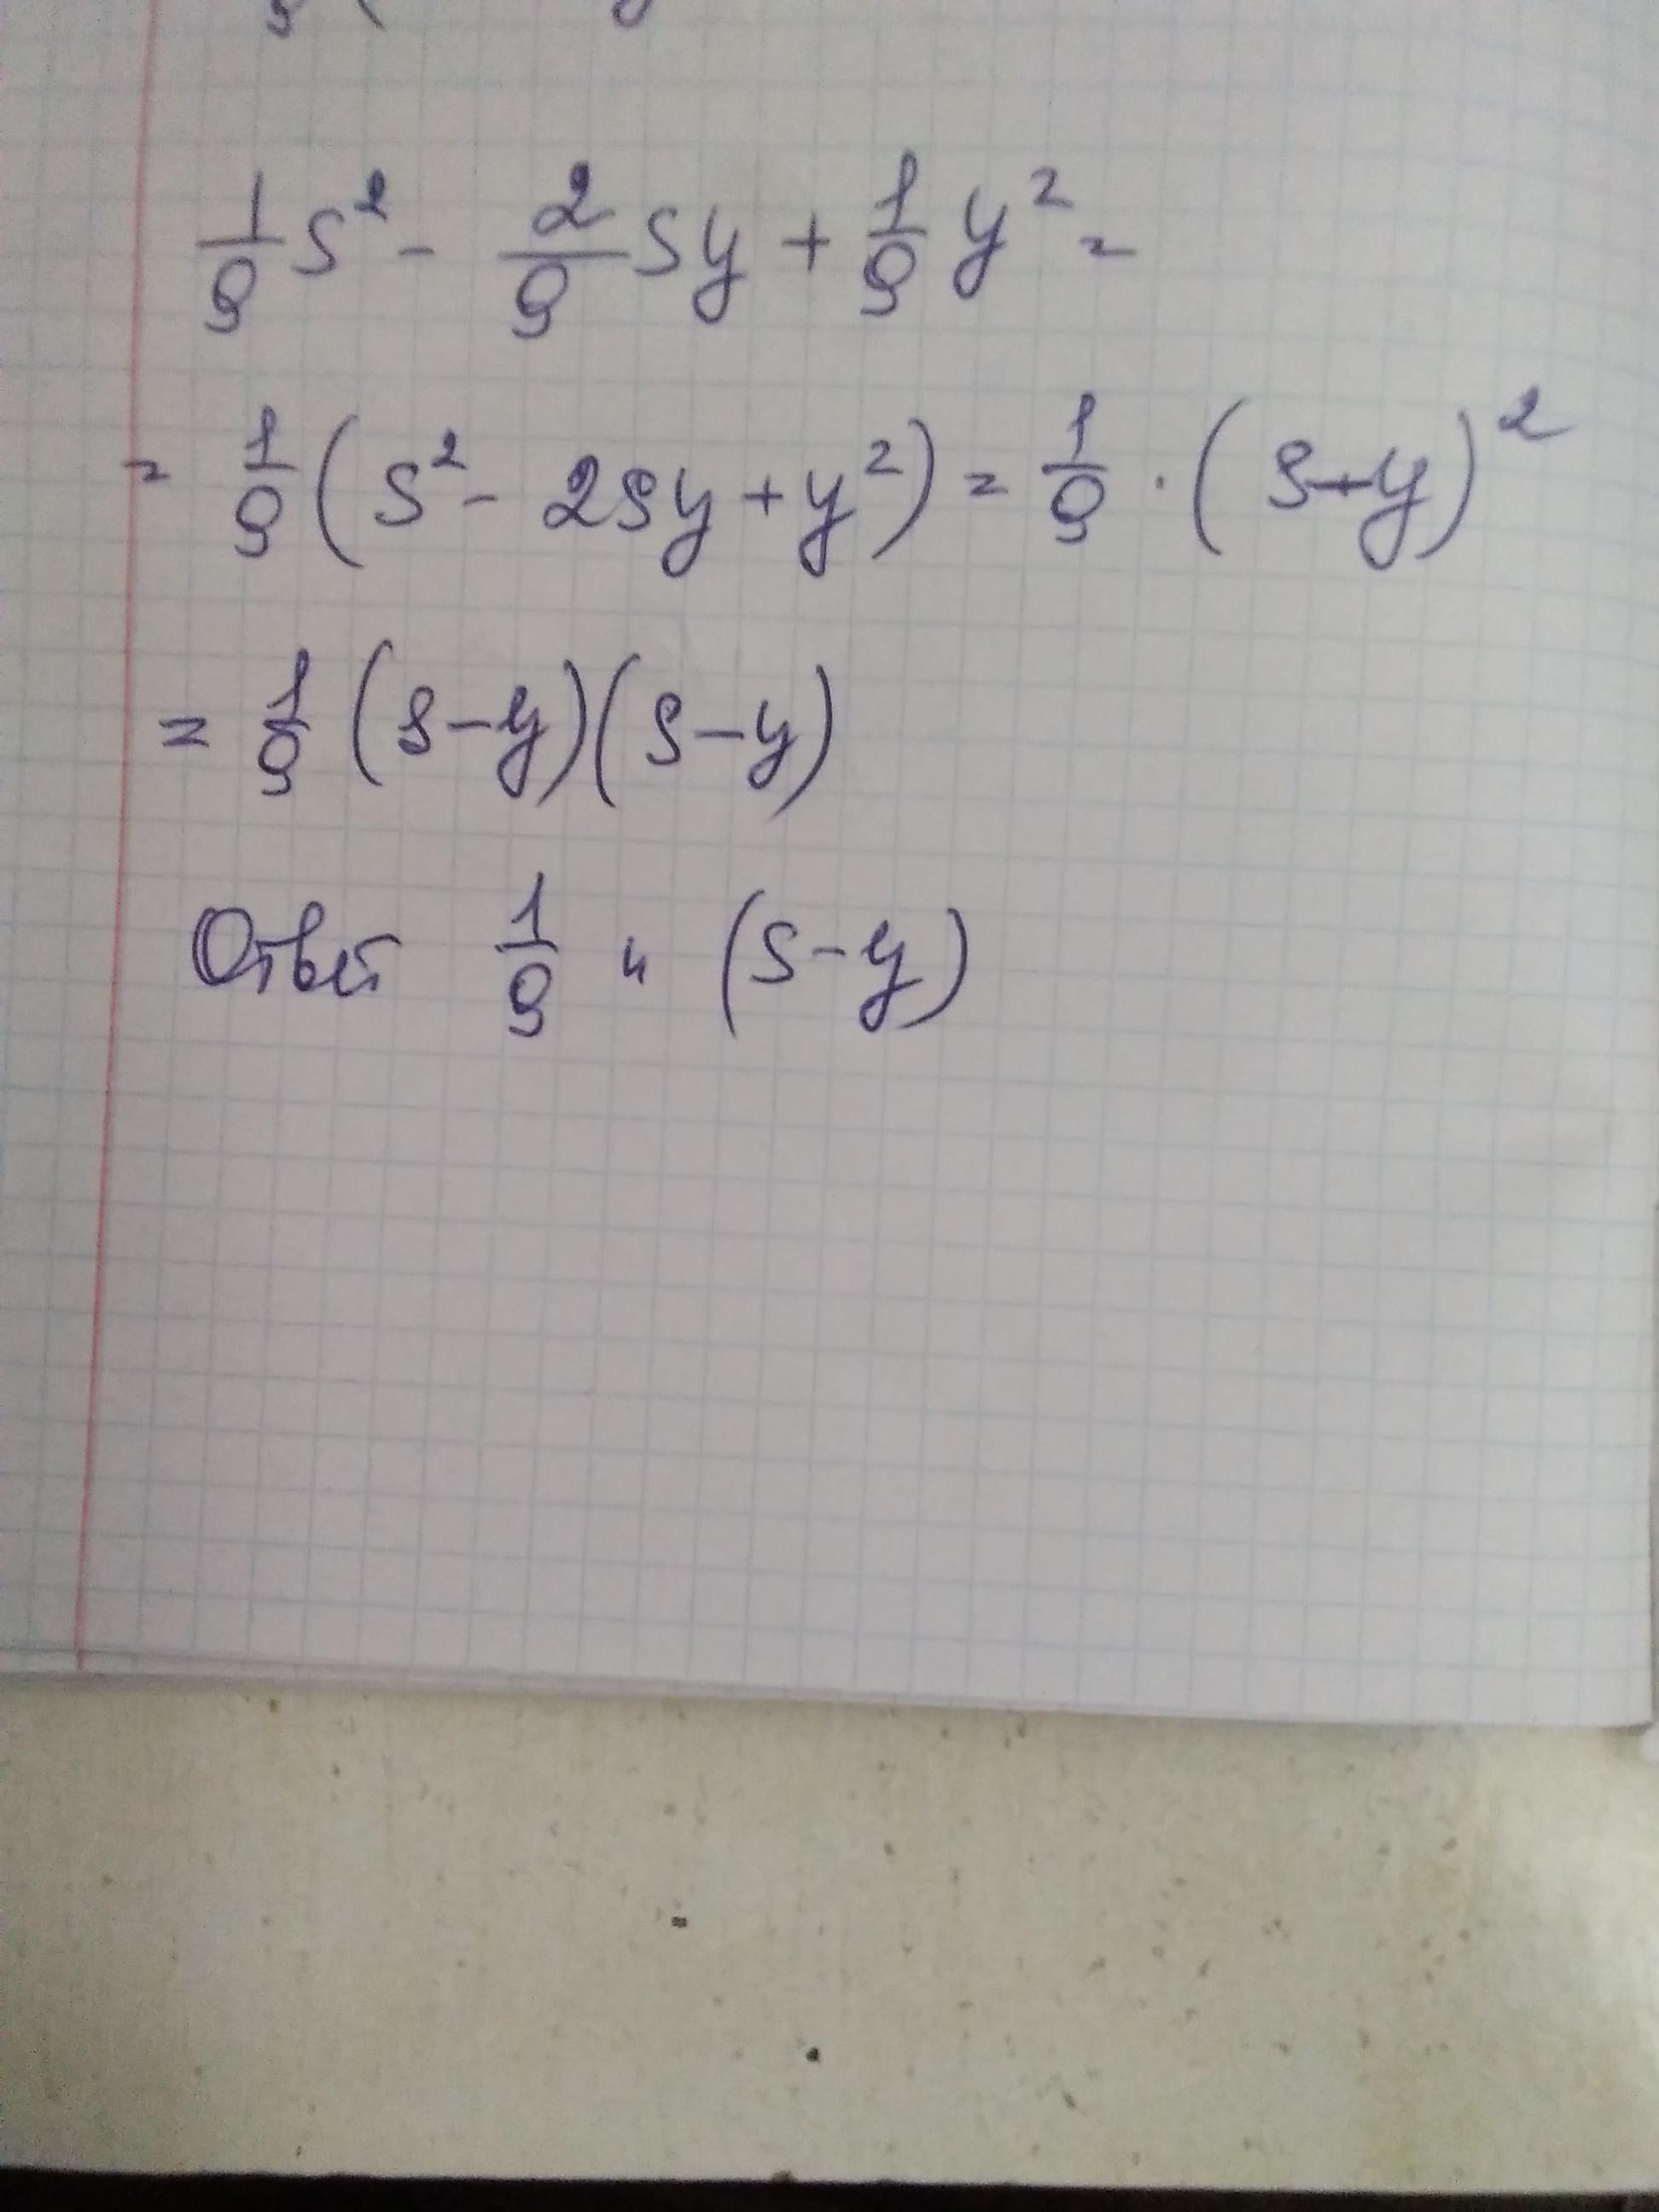 1/9 s² - 2/9 sy + 1/9 y² =
= 1/9 (s² - 2sy + y²) = 1/9 · (s+y)²
= 1/9 (s-y)(s-y)
Ответ 1/9 и (s-y)